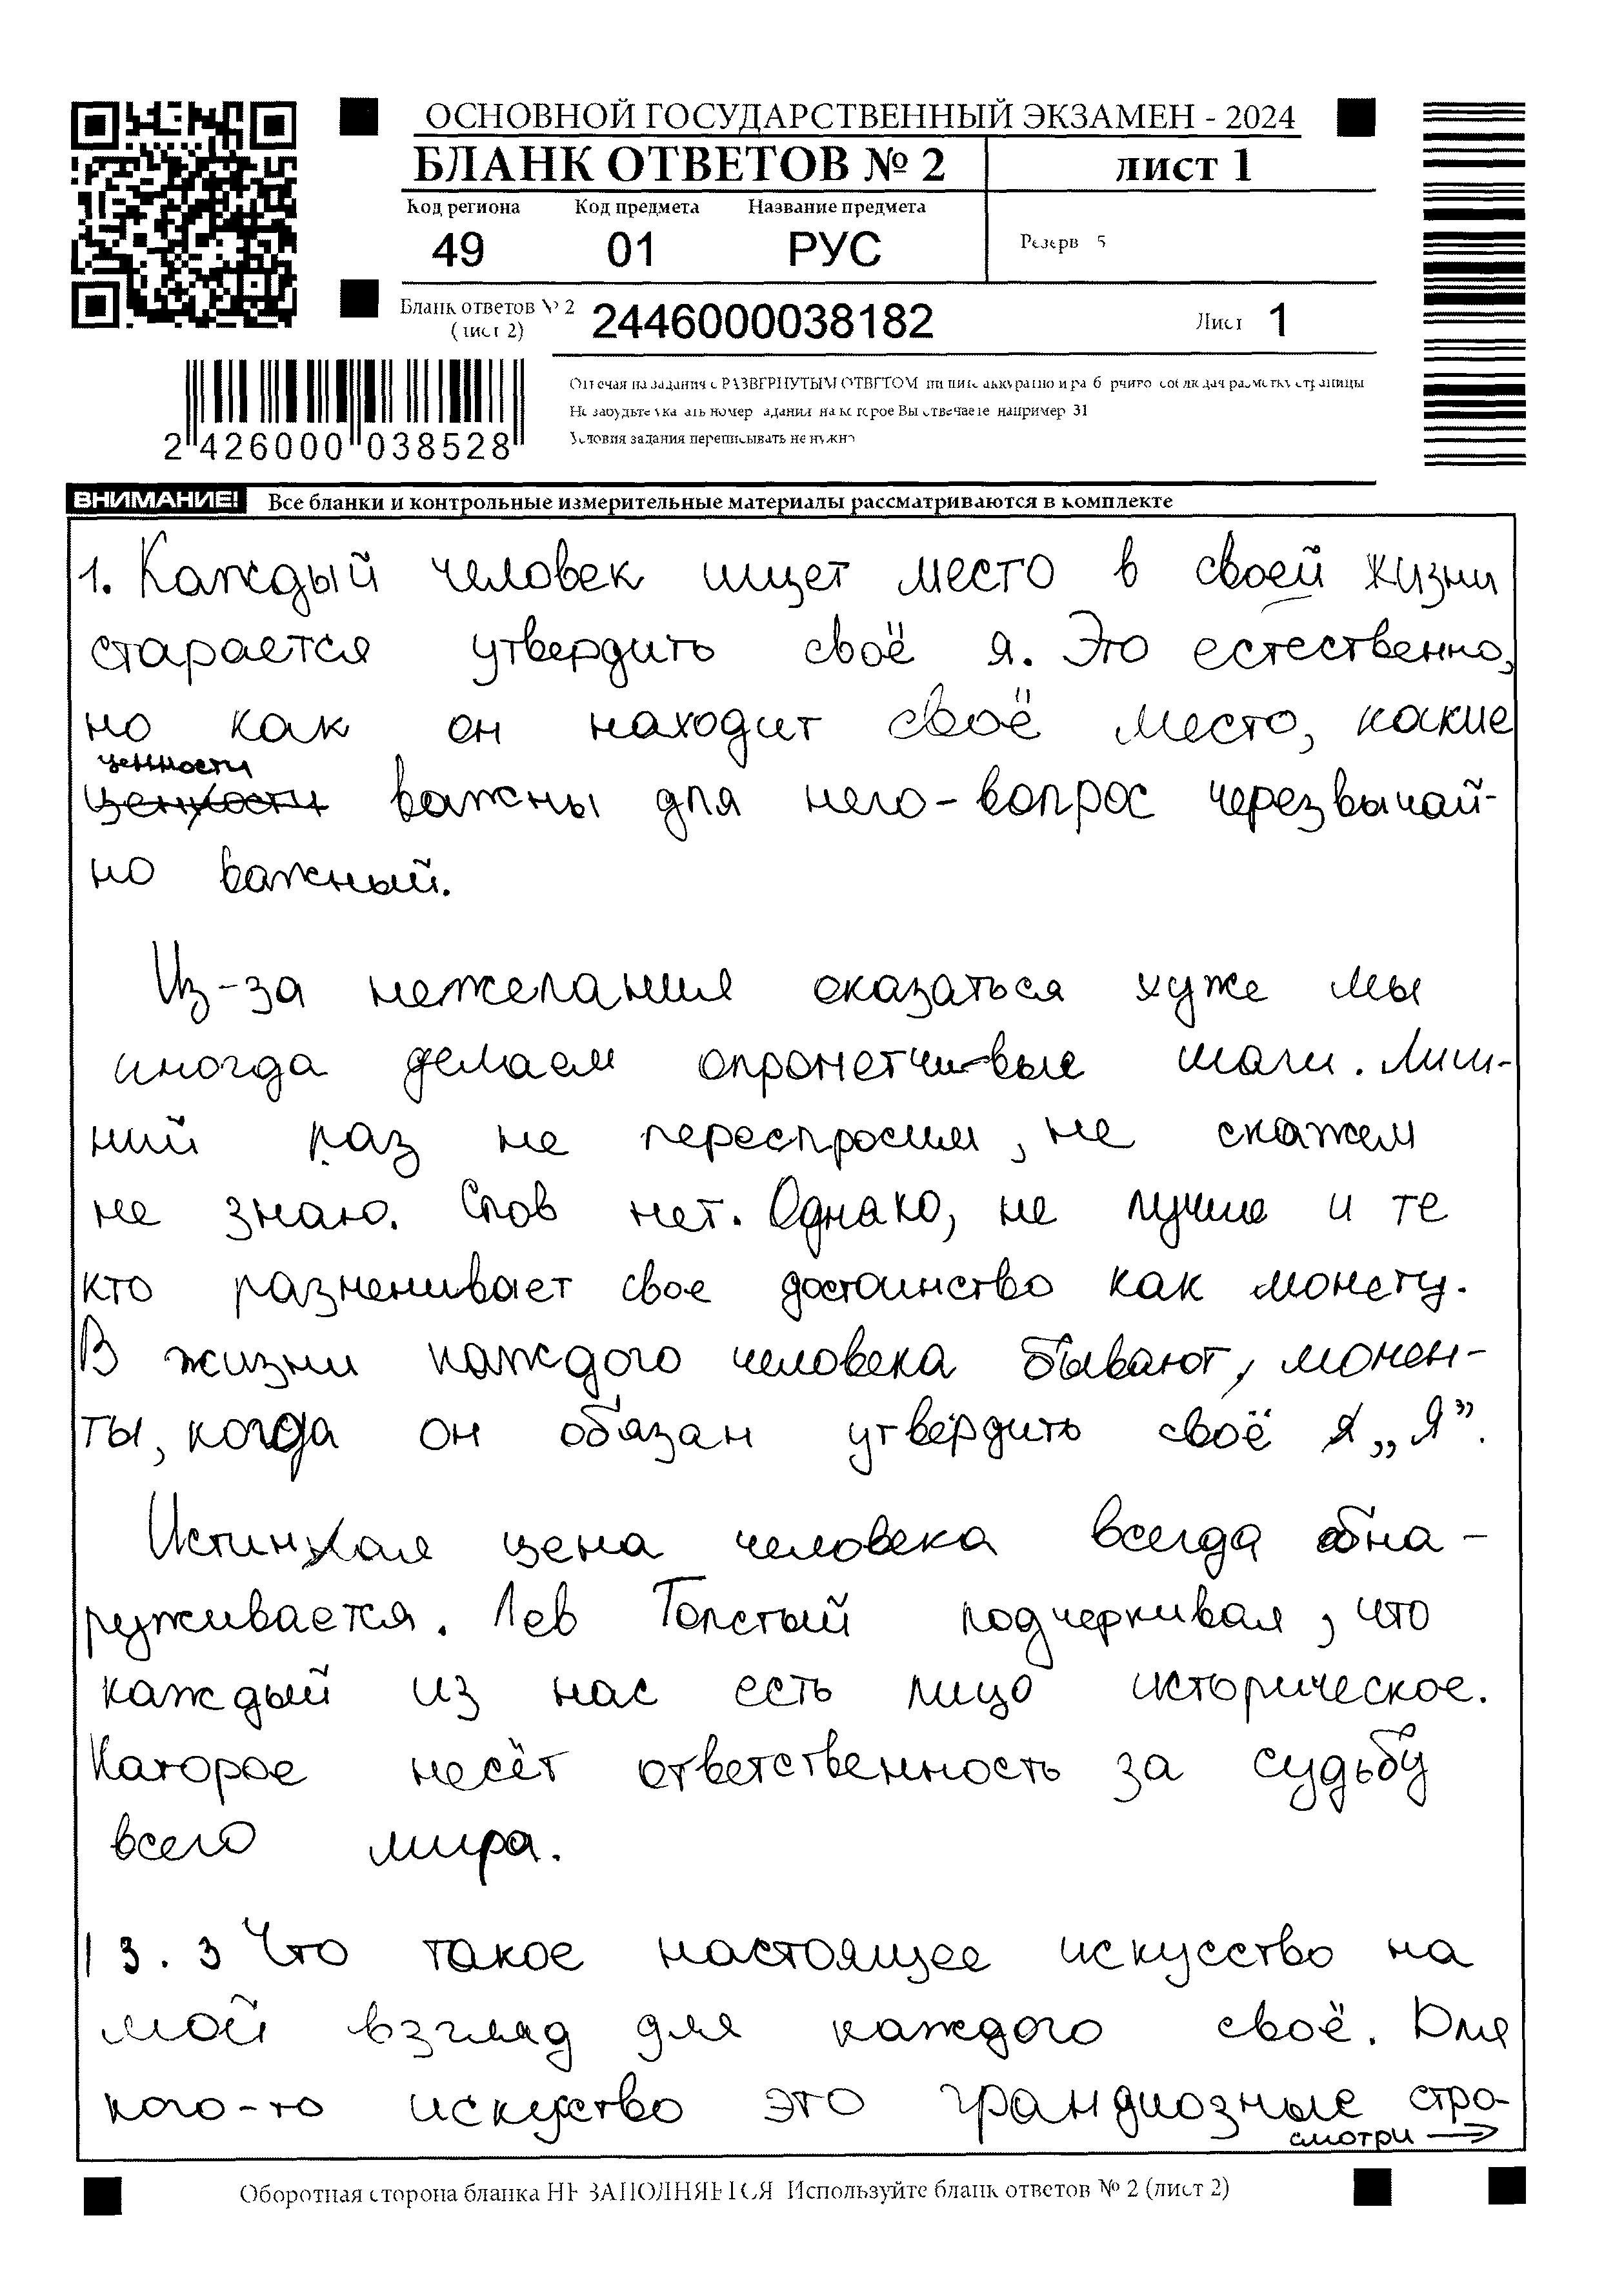 ОСНОВНОЙ ГОСУДАРСТВЕННЫЙ ЭКЗАМЕН - 2024
БЛАНК ОТВЕТОВ № 2
лист 1
Код региона Код предмета Название предмета
49 01 РУС
Резерв 5
Бланк ответов № 2
(лист 2)
2446000038182
Лист 1
Отвечая на задания с РАЗВЕРНУТЫМ ОТВЕТОМ, пишите аккуратно и разборчиво, соблюдая разметку страницы
Не забудьте указать номер задания, на которое Вы отвечаете, например 31
Условия задания переписывать не нужно
2 426000 038528
ВНИМАНИЕ! Все бланки и контрольные измерительные материалы рассматриваются в комплекте
1. Каждый человек ищет место в своей жизни
старается утвердить своё я. Это естественно,
но как он находит своё место, какие
ценности
ценности важны для него-вопрос черезвычай-
но важный.
Из-за нежелания оказаться хуже мы
иногда делаем опрометчивые шаги. Лиш-
ний раз не переспросим, не скажем
не знаю. Слов нет. Однако, не лучше и те
кто разменивает свое достоинство как монету.
В жизни каждого человека бывают, момен-
ты, когда он обязан утвердить своё Я „Я”.
Истинная цена человека всегда обна-
руживается. Лев Толстый подчеркивал, что
каждый из нас есть лицо историческое.
Каторое несёт ответственность за судьбу
всего мира.
13.3 Что такое настоящее искусство на
мой взгляд для каждого своё. Для
кого-то искуство это грандиозные стро-
смотри →
Оборотная сторона бланка НЕ ЗАПОЛНЯЕТСЯ Используйте бланк ответов № 2 (лист 2)